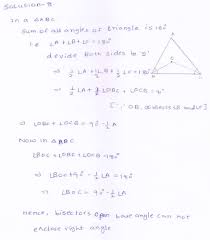 Solution-8
In a △ABC
Sum of all angles of triangle is 180°
i.e ∠A + ∠B + ∠C = 180°
devide both sides to '2'
⇒ ½∠A + ½∠B + ½∠C = 180°
⇒ ½∠A + ∠OBC + ∠OCB = 90°
[∵ OB, OC bisects ∠B and ∠C]
⇒ ∠OBC + ∠OCB = 90° - ½∠A
Now in △ABC
∠BOC + ∠OBC + ∠OCB = 180°
⇒ ∠BOC + 90° - ½∠A = 180°
⇒ ∠BOC = 90° - ½∠A
Hence, bisectors open base angle can not
enclose right angle